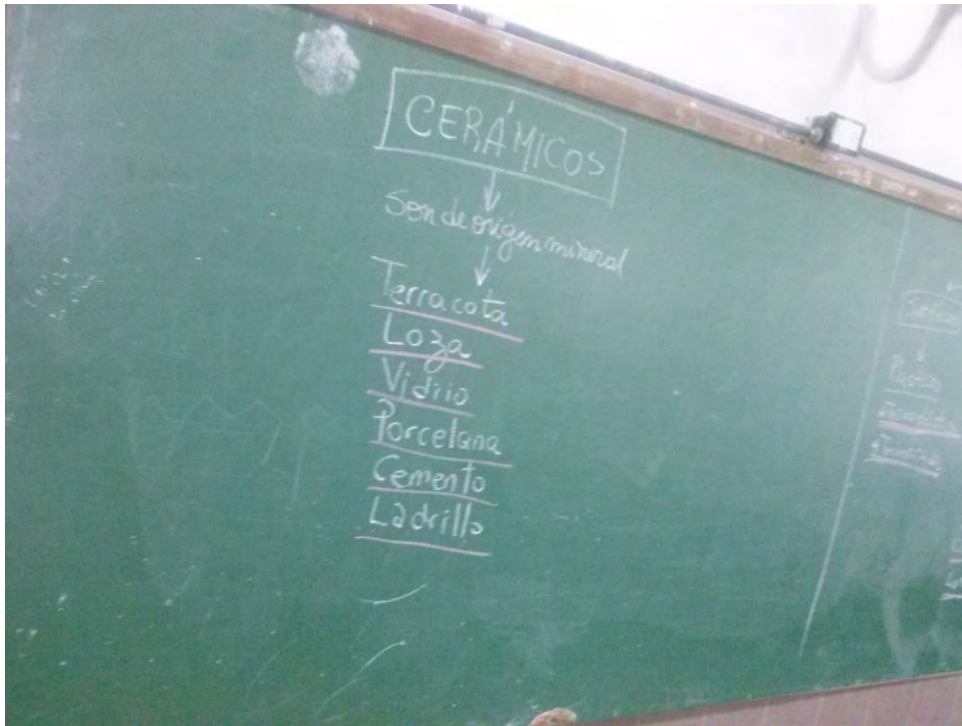 CERÁMICOS
Son de origen mineral
Terracota
Loza
Vidrio
Porcelana
Cemento
Ladrillo